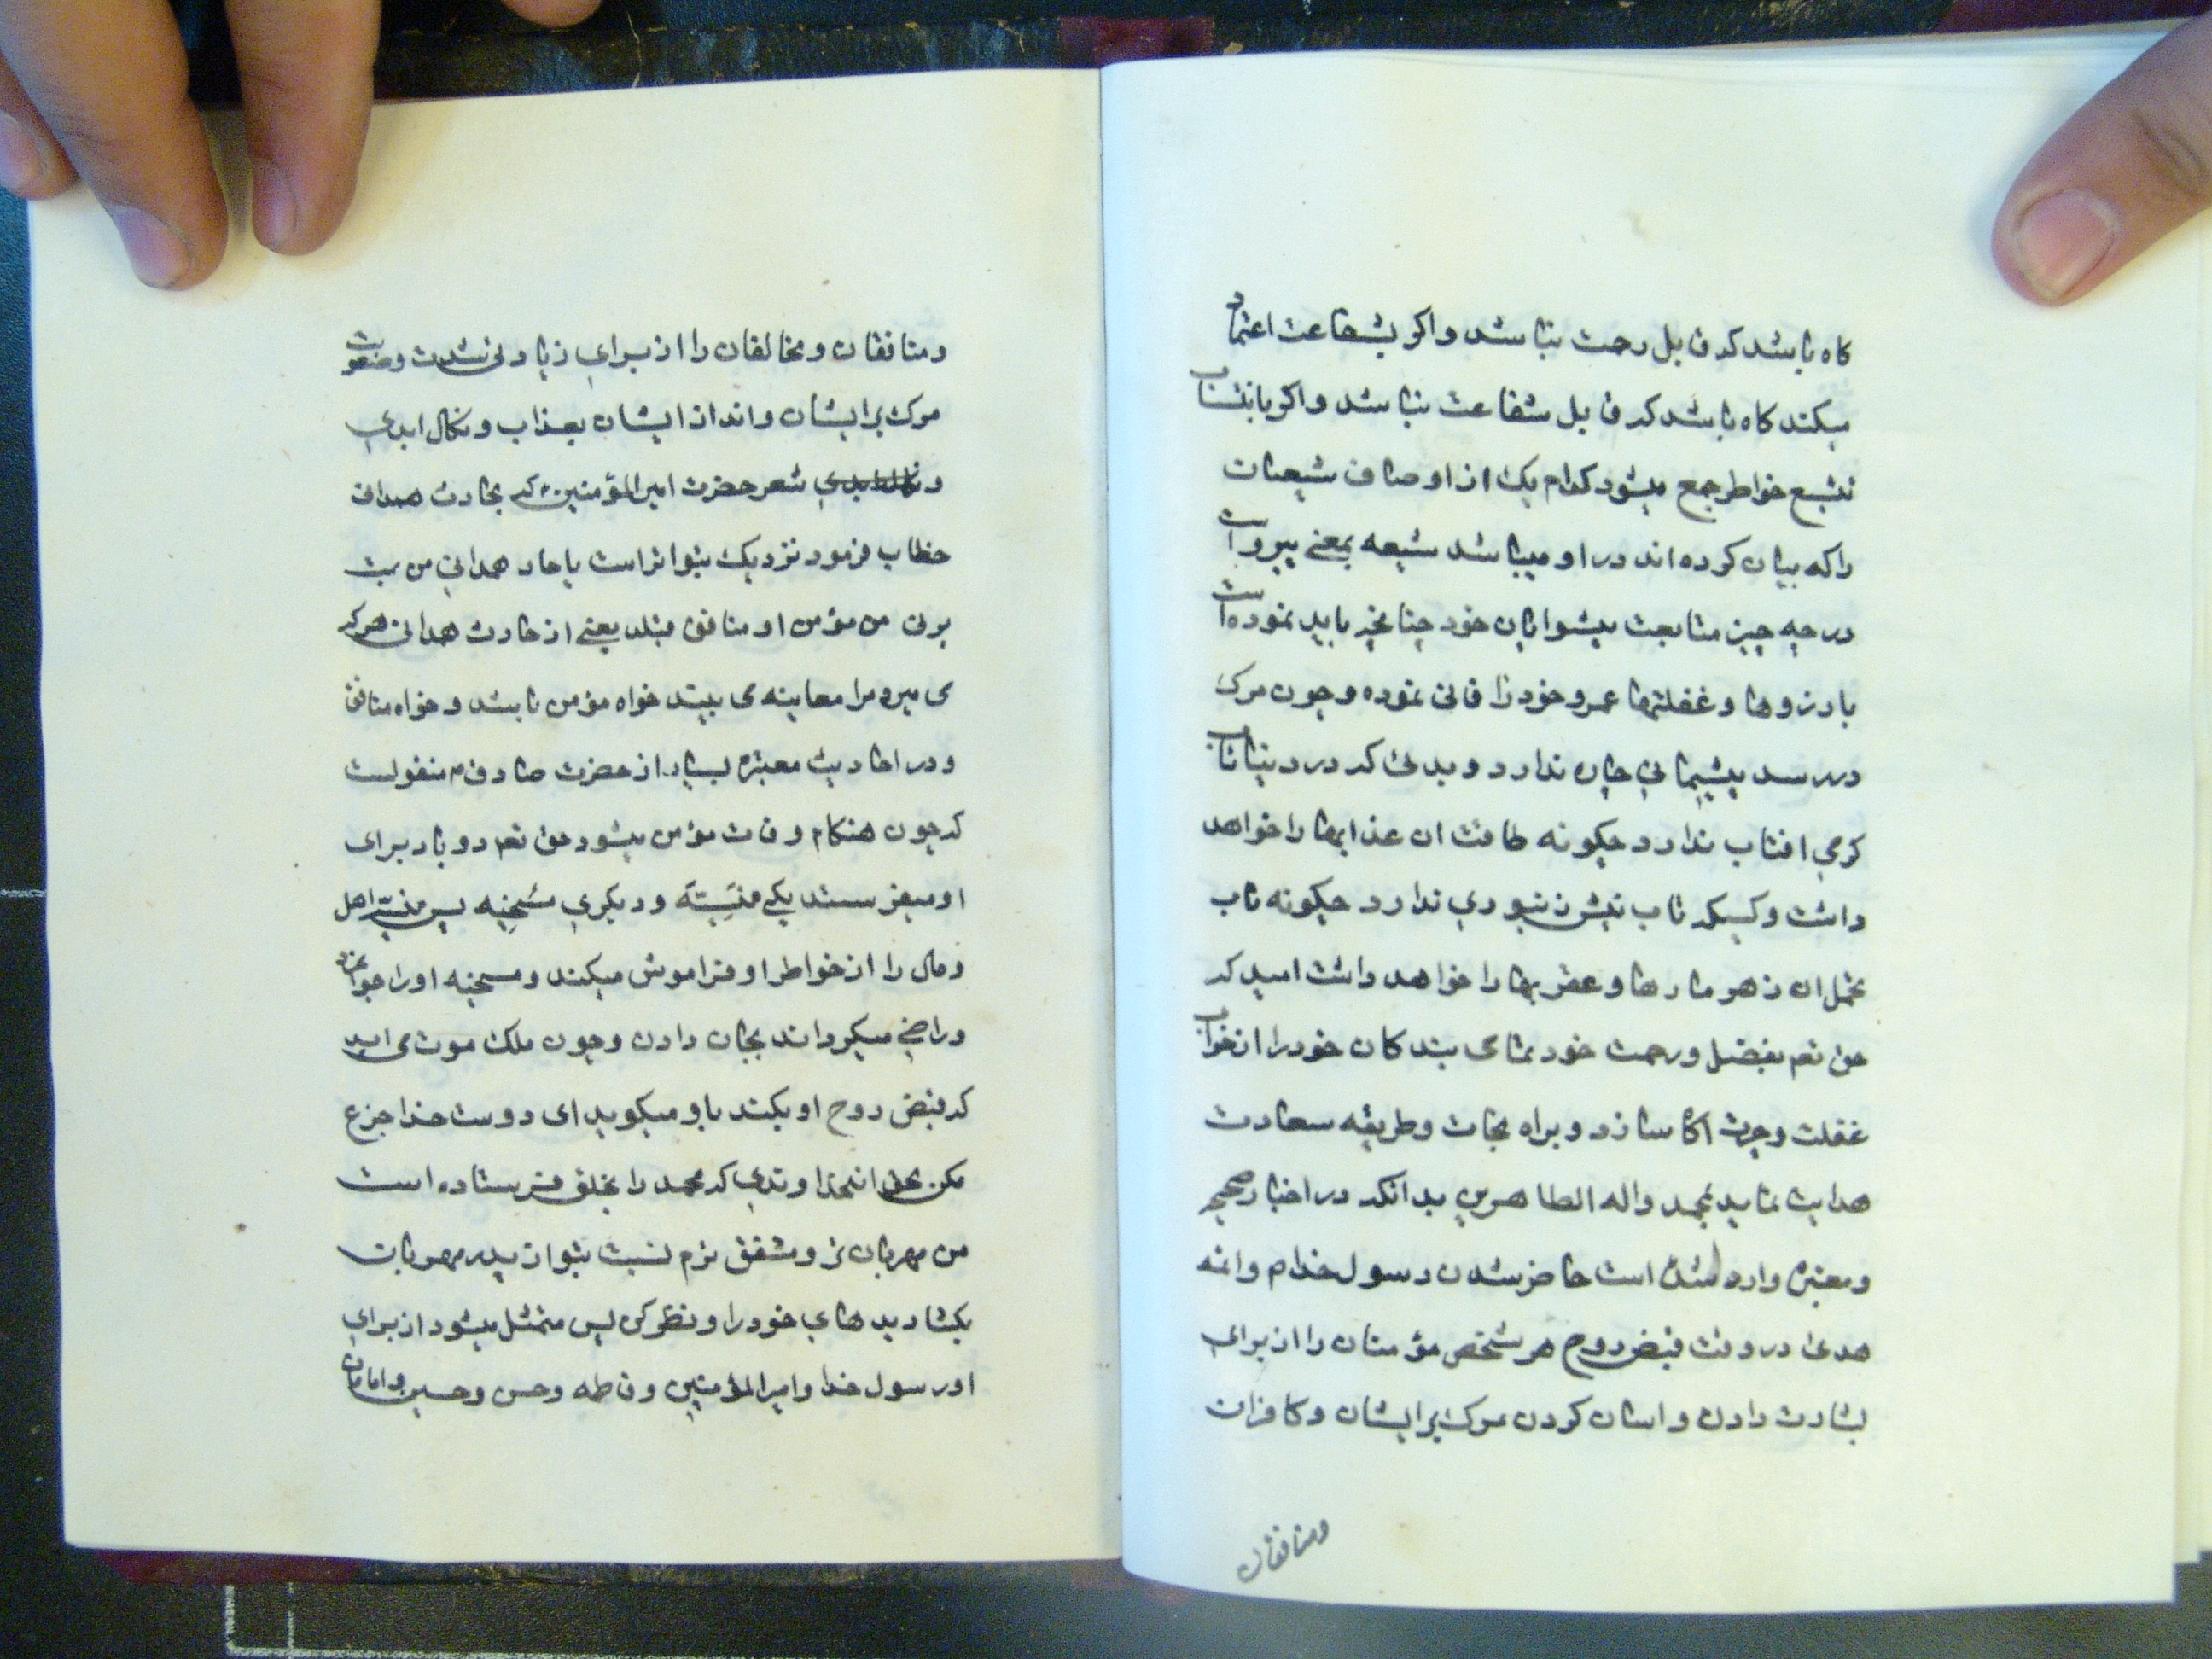 کاه باشد که قابل رحمت نباشد واکر بشفاعت اعتماد
میکند کاه باشد که قابل شفاعت نباشد واکر بانتساب
تشیع خواطر جمع میشود کدام یک از اوصاف شیعیان
را که بیان کرده اند در او میباشد شیعه بمعنی پیرو است
در چه چیز متابعت پیشوایان خود چنانچه باید نموده است
بارزوها و غفلتها عمر خود را فانی نموده و چون مرک
در رسد پشیمانی چاره ندارد و بدنی که در دنیا تاب
کرمی افتاب ندارد چکونه طاقت ان عذابها را خواهد
داشت و کسیکه تاب نیش زنبوری ندارد چکونه تاب
تحمل ان زهر مارها و عقربها را خواهد داشت امید که
حق تعم بفضل و رحمت خود تمامی بندکان خود را از خواب
غفلت و حیرت اکاه سازد و براه نجات و طریقه سعادت
هدایت نماید بمحمد واله الطاهرین بدانکه در اخبار صحیح
ومعتبره وارد شده است حاضر شدن رسول خدام وائمه
هدی در وقت قبض روح هر شخص مؤمنان را از برای
بشارت دادن و اسان کردن مرک بر ایشان و کافران
ومنافقان
ومنافقان ومخالفان را از برای زیادتی شدت وصعوبت
مرک بر ایشان وانذار ایشان بعذاب ونکال ابدی
و شعر حضرت امیرالمؤمنین که بحارث همدان
خطاب فرمود نزدیک بتواتر است یا حار همدان من یمت
یرنی من مؤمن او منافق قبلا یعنی ای حارث همدانی هر که
می میرد مرا معاینه می بیند خواه مؤمن باشد وخواه منافق
ودر احادیث معتبره بسیار از حضرت صادق م منقولست
که چون هنکام وفات مؤمن میشود حق تعم دو باد برای
او میفرستد یکی منسیته ودیکری مسخیه پس منسیته اهل
ومال را از خواطر او فراموش میکند ومسخیه او را جوانمرد
وراضی میکرداند بجان دادن وچون ملک موت می اید
که قبض روح او بکند باو میکوید ای دوست خدا جزع
مکن بحق انخداوندی که محمد را بخلق فرستاده است
من مهربان تر ومشفق ترم نسبت بتو از پدر مهربان
بکشا دیدهای خود را ونظر کن پس متمثل میشود از برای
او رسول خدا وامیرالمؤمنین وفاطمه وحسن وحسین وامامان